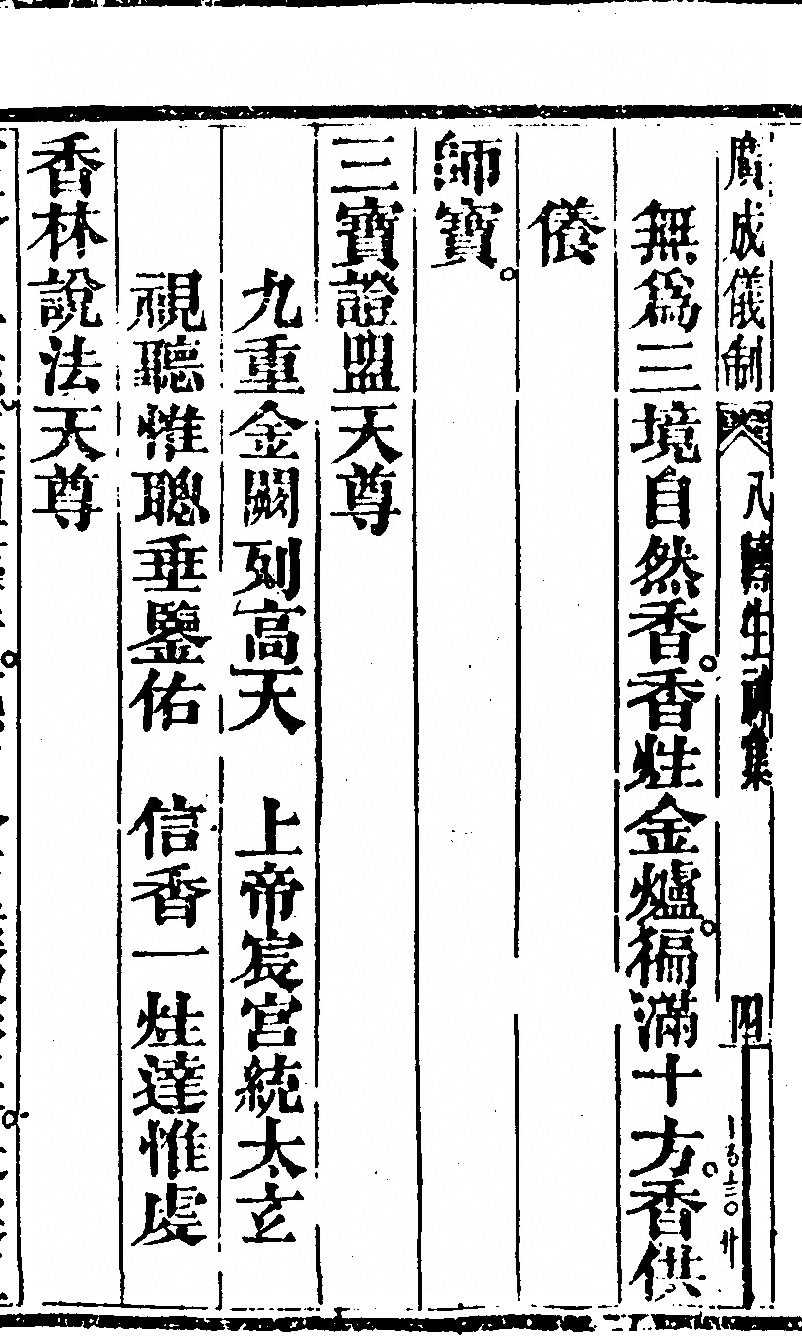 廣成儀制 八 生神集 四
無為三境自然香。香炷金爐。徧滿十方。香供
養
師寶。
三寶證盟天尊
九重金闕列高天 上帝宸宮統太玄
視聽惟聰垂鑒佑 信香一炷達惟虔
香林說法天尊